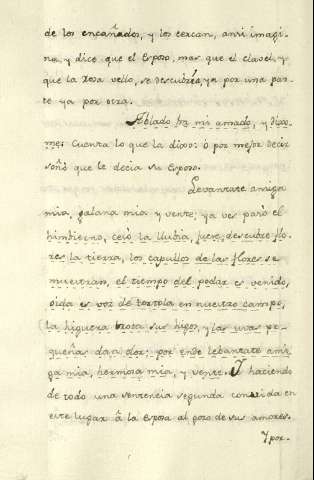 de los encañados, y los cercan, anri imagi-
na, y dice, que el Esposo, mas que el clavel, y
que la rosa vello, se descubria, ya por una par-
te ya por otra.
Ablado ha mi amado, y dixo-
me: Cuenta lo que la dixo: ò por mejor decir
soñò que le decia su Esposo.
Levantate amiga
mia, galana mia y vente; ya ves pasò el
himbierno, cesò la llubia, fuese, descubre flo-
res la tierra, los capullos de las flores se
muestran, el tiempo del podar es venido,
oida es voz de tortola en nuestro campo,
la higuera brota sus higos, y las uvas pe-
queñas dan olor: por ende lebantate ami-
ga mia, hermosa mia, y vente. Y haciendo
de todo una sentencia segunda convida en
este lugar â la Esposa al gozo de sus amores.
Y por-